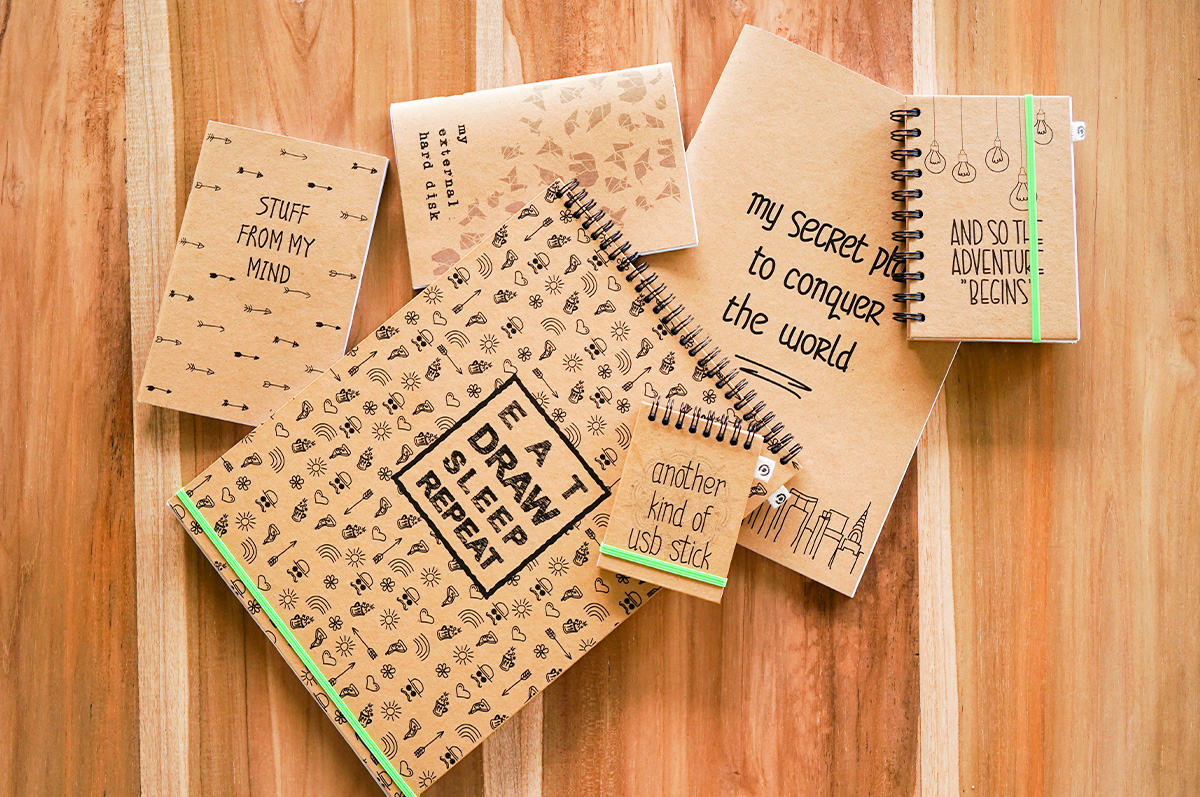 STUFF
FROM MY
MIND
my
external
hard disk
my secret pla
to conquer
the world
AND SO THE
ADVENTURE
"BEGINS"
EAT
DRAW
SLEEP
REPEAT
another
kind of
usb stick